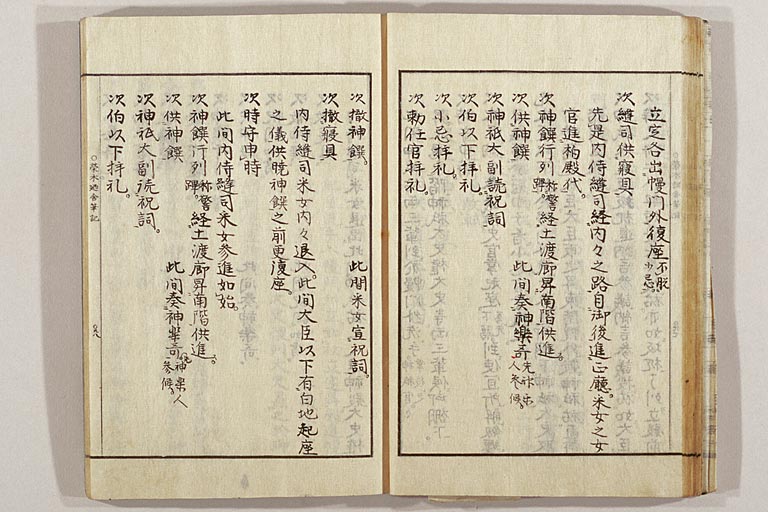 立定各出幔門外復座不脱小忌
次縫司供寝具
先是内侍縫司経内々之路自御後進正廳。采女之女
官進柏殿代。
次神饌行列称警蹕。経土渡廊昇南階供進。
次供神饌　此间奏神樂哥先神樂人参候。
次神祇大副読祝詞
次伯以下拝礼。
次小忌拝礼。
次勅任官拝礼
次撤神饌。　此間采女宣祝詞。
次撤寝具
内侍縫司采女内々退入。此间大臣以下有白地起座
之儀供暁神饌之前更復座。
次時守申時
此间内侍縫司采女参進如始。
次神饌行列称警蹕。経土渡廊昇南階供進。
次供神饌　此间奏神楽哥先神楽人参候。
次神祇大副読祝詞。
次伯以下拝礼。